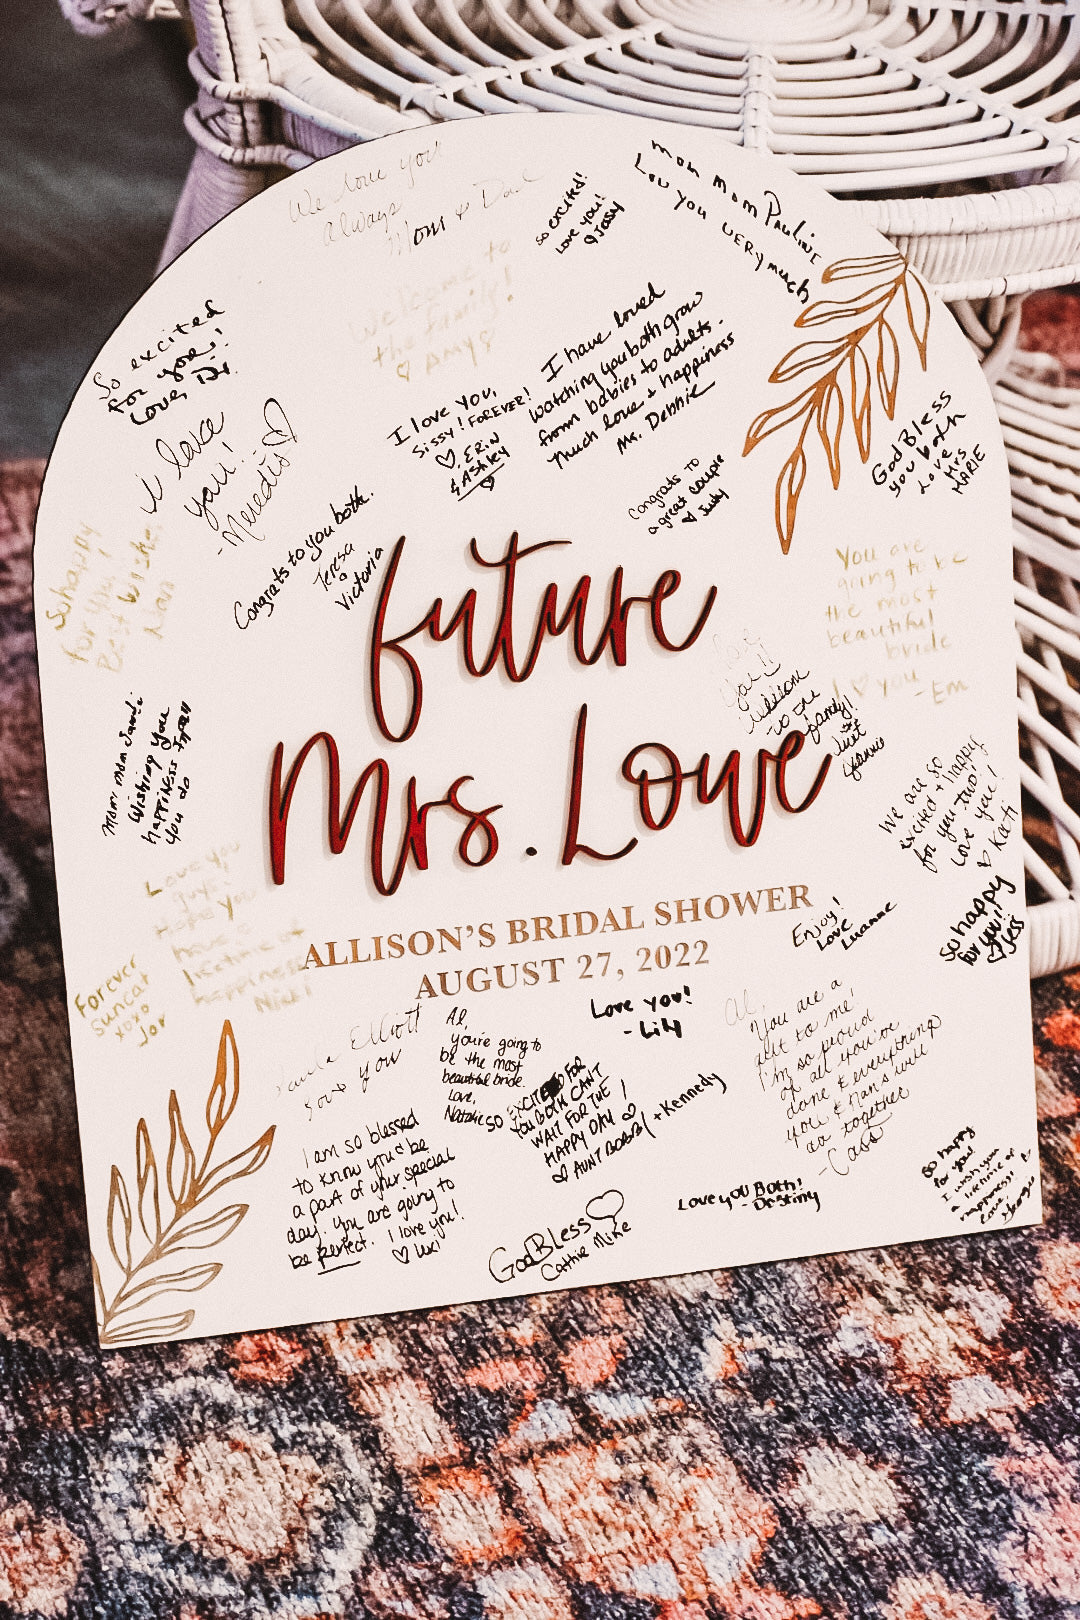 We love you
always
Mom & Dad
so excited!
Love you!
Jassy
Mom Mom Pauline
Lov you very much
Welcome to
the family!
Amy
So excited
for you!!
Love, Di
I love you,
Sissy! FOREVER!
ERIN
& ASHLEY
I have loved
watching you both grow
from babies to adults.
Much love + happiness
Ms. Debbie
you!
-Meredith
Congrats to you both.
Teresa
Victoria
Congrats to
a great couple
Judy
God Bless
you both
Love
Mrs
MARIE
So happy
for you!
Best wishes,
Nan
future
Mrs. Lowe
You are
going to be
the most
beautiful
bride
I ♡ you
-Em
Love
you!!
to the
family!
Aunt
Jeannie
Mom Mom Sandi
Wishing you
happiness in all
you do
We are so
excited + happy
for you two!
Love you!
♡ Kati
Love you
guys!
Hope you
have a
lifetime of
happiness
Nicki
ALLISON'S BRIDAL SHOWER
AUGUST 27, 2022
Enjoy!
Love
Luanne
So happy
for you!!
♡ Jess
Forever
Suncat
xoxo
Jor
Elliott
Love you
Al,
you're going to
be the most
beautiful bride.
Love,
Natalie
Love you!
- Lily
SO EXCITED FOR
YOU BOTH CAN'T
WAIT FOR THE
HAPPY DAY!
♡ AUNT BOBBI + Kennedy
Al,
You are a
gift to me!
I'm so proud
of all you've
done & everything
you & Hans will
do together
- Cass
I am so blessed
to know you & be
a part of your special
day. You are going to
be perfect. I love you!
♡ Uki
God Bless
Cathie Mike
Love you Both!
- Destiny
So happy
for you!
I wish you
a lifetime of
happiness!
Love,